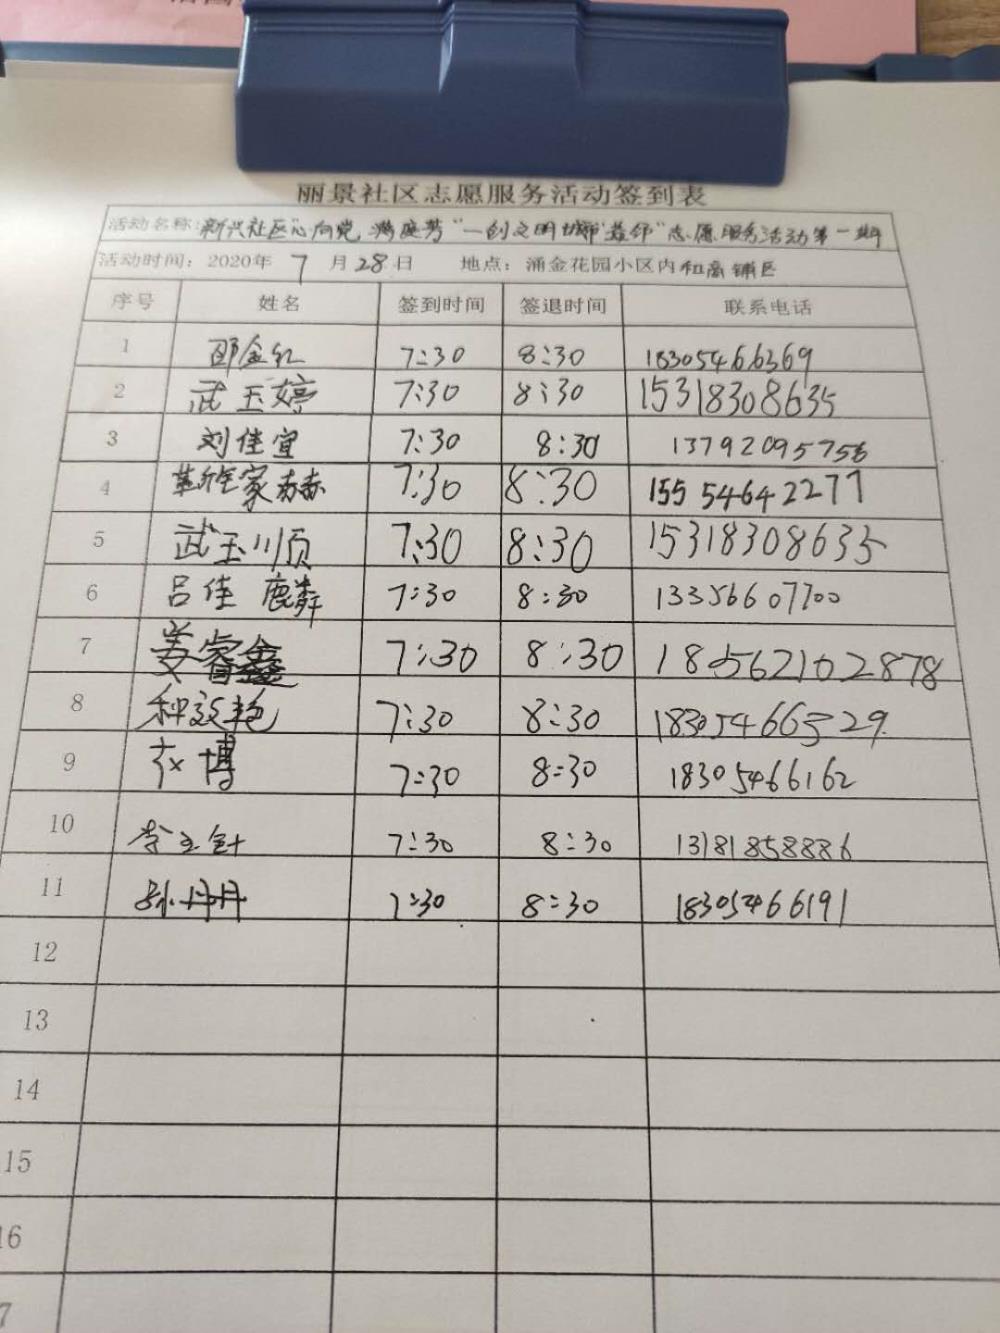 丽景社区志愿服务活动签到表
活动名称:新兴社区"心向党 满庭芳"一创文明城"益邻"志愿服务活动第一期
活动时间: 2020年 7 月 28 日 地点: 涌金花园小区内和商铺区
序号 姓名 签到时间 签退时间 联系电话
1 邵金红 7:30 8:30 18305466369
2 武玉婷 7:30 8:30 15318308635
3 刘佳宜 7:30 8:30 13792095756
4 家赫 7:30 8:30 15554642277
5 武玉顺 7:30 8:30 15318308635
6 吕佳麒麟 7:30 8:30 13356607700
7 姜睿鑫 7:30 8:30 18562102878
8 种效艳 7:30 8:30 18305466529
9 博 7:30 8:30 18305466162
10 李玉 7:30 8:30 13181858886
11 孙丹丹 7:30 8:30 18305466191
12
13
14
15
16
7